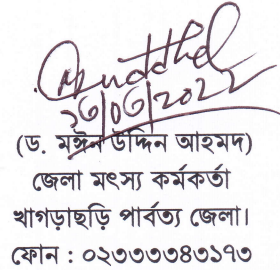 ২৩/০৬/২০২২
(ড. মঈন উদ্দিন আহমদ)
জেলা মৎস্য কর্মকর্তা
খাগড়াছড়ি পার্বত্য জেলা।
ফোন : ০২৩৩৩৩৪৩১৭৩